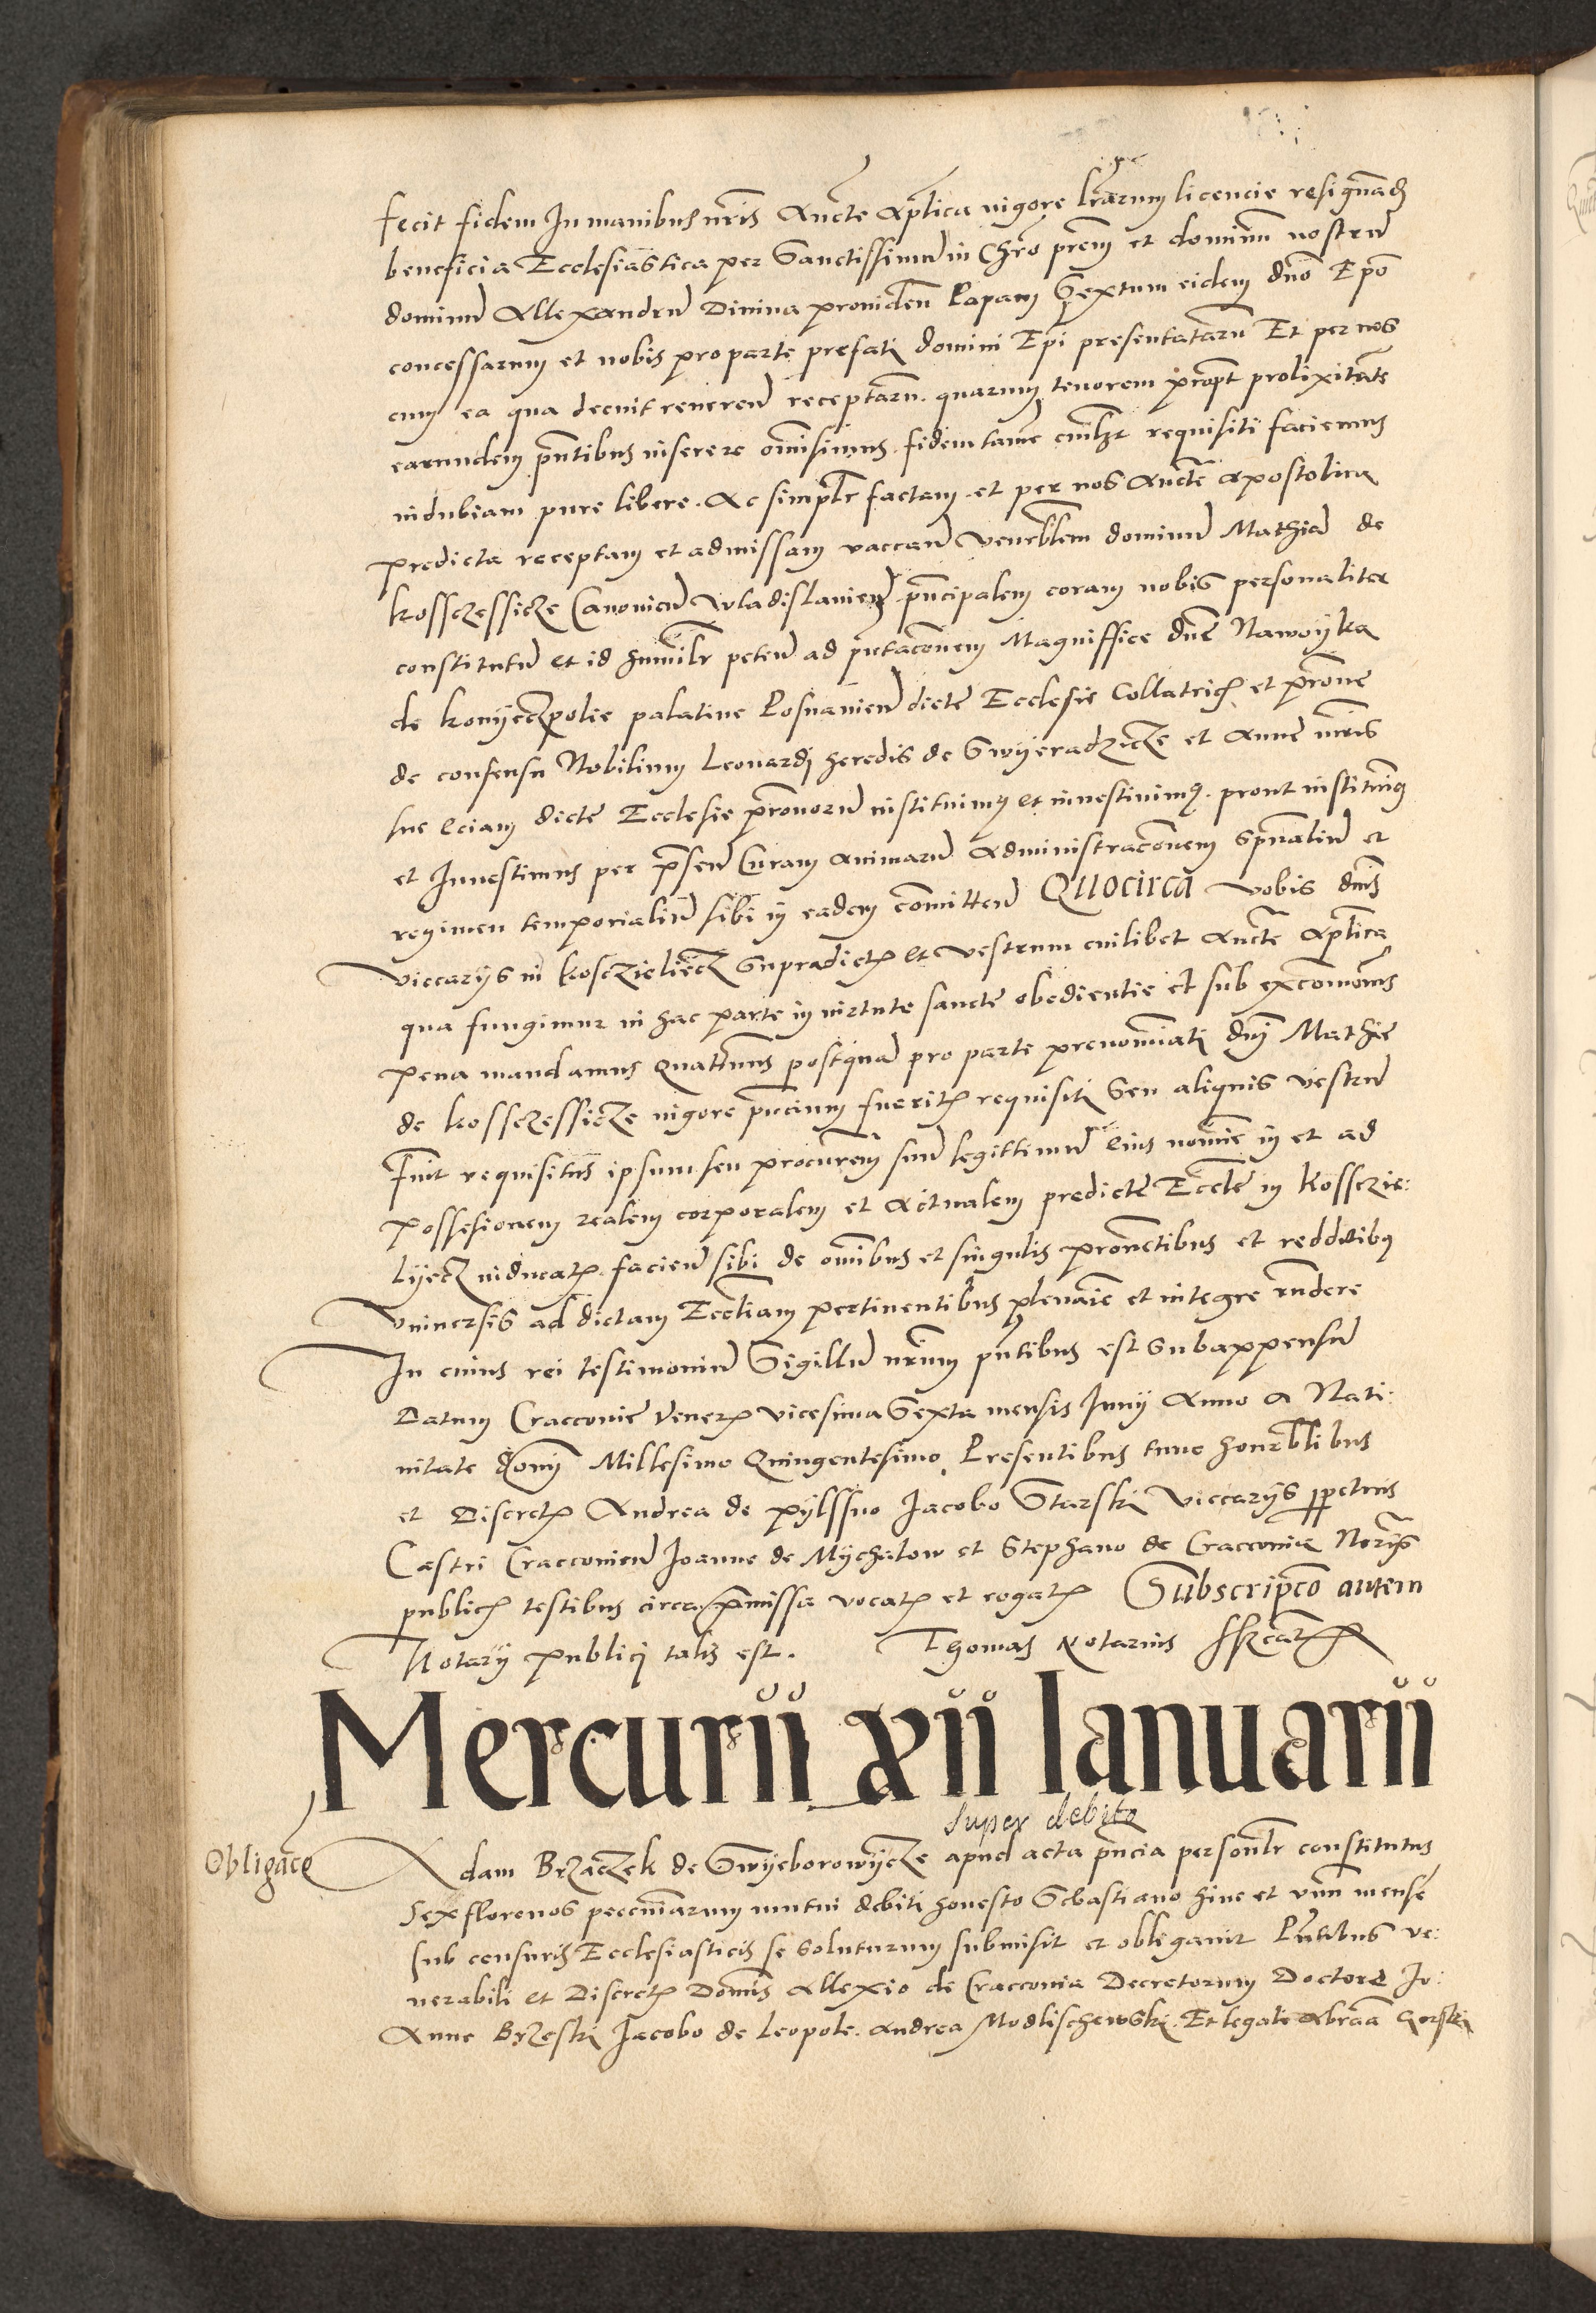 fecit fidem In manibus nr̃is Aucte̅ Apl̃ica vigore lr̃arum licencie resignãdj
beneficia Ecclesiastica per Sanctissimu̅ in Chr̃o prem̃ et dominu̅ nostru̅
dominu̅ Allexandru̅ Divina providen̅ Papam Sextum eidem dño Ep̃o
concessarum et nobis pro parte prefati domini Ep̃i presentataru̅ Et per nos
cum ea qua decuit reveren̅ receptaru̅. quarum tenorem propt̃ prolixitate̅
earundem pñtibus inserere om̃isimus. fidem tame̅ requisiti facimus
indubiam pure libere. Ac simpl̃r factam et per nos Aucte̅ apostolica
predicta receptam et admissam vaccan̅ Venerblẽm dominu̅ Mathia̅ de
Kossczessicze Canonicu̅ Wladislavien̅ pñcipalem coram nobis personaliter
constitutu̅ et id humil̃r peten̅ ad pñtacõnem Magniffice dñe Nawoyka
de Konyeczpolie palatine Posnanien̅ dicte Ecclesie Collatricȩ et patrõne
de consensu Nobilium Leonardj heredis de Swyeradzicze et Anne mr̃is
sue eciam dicte Ecclesie patrõnoru̅ instituimus et investivimus. prout instituimus
et Investimus per pr̃sen̅ Curam animaru̅ Administracõnem spũaliu̅ et
regimen temporaliu̅ sibi in eadem com̃itten̅ Quocirca vobis dñis
viccariis in Kosczieliecz supradictis et vestrum cuilibet Aucte̅ Apl̃ica
qua fungimur in hac parte in virtute sancte obedientie et sub excõmunicõnis
pena mandamus Quatenus postqua̅ pro parte prenom̃inati dñj Mathie
de Kossczessicze vigore pñcium fueritis requisiti Seu aliquis vestru̅
Fuit requisitus ipsum seu procurem̃ suu̅ legittimu̅ eius nomi̅e in et ad
possesionem realem corporalem et Actualem predicte Eccl̃e in Kossczie:
lyecz inducatis. facien̅ sibi de om̃ibus et singulis proventibus et redditibus
Universis ad dictam Eccl̃iam pertinentibus plenarie et integre rñdere
In cuius rei testimoniu̅ Sigillu̅ nr̃um pñtibus est Subappensu̅
Datum Cracconie Veneris vicesima Sexta mensis Junij Anno A Nati:
vitate dom̃j Millesimo Quingentesimo. Presentibus tunc honorblĩbus
et Discretis Andrea de Pylssno Jacobo Starski Viccarijs perpetuis
Castri Cracconien̅ Joanne de Mychalow et Stephano de Cracconia Notr̃ijs
publicis testibus circa p̃missa vocatis et rogatis Subscripcõ autem
Notarij publicj talis est. Thomas Notarius
Mercurii xii Ianuarii
super debito
Obligacõ Adam Brzaczek de Swyeborowycze apud acta pñcia personl̃r constitutus
Sex florenos peccuniarum mutui debiti honesto Sebastiano hinc et unu̅ mense̅
sub censuris Ecclesiasticis se soluturum submisit et obligavit Pñtibus ve:
nerabili et Discretis Domi̅s Allexio de Cracconia Decretorum Doctore Jo:
Anne Brzeski Jacobo de Leopole. Andrea Modlischewski. Et legali Abraa̅ Gorski